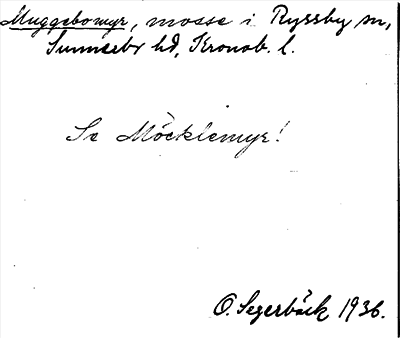 Muggebomyr, mosse i Ryssby sn,
Sunnerbo hd, Kronob. l.
Se Möcklemyr!
O. Segerbäck 1936.